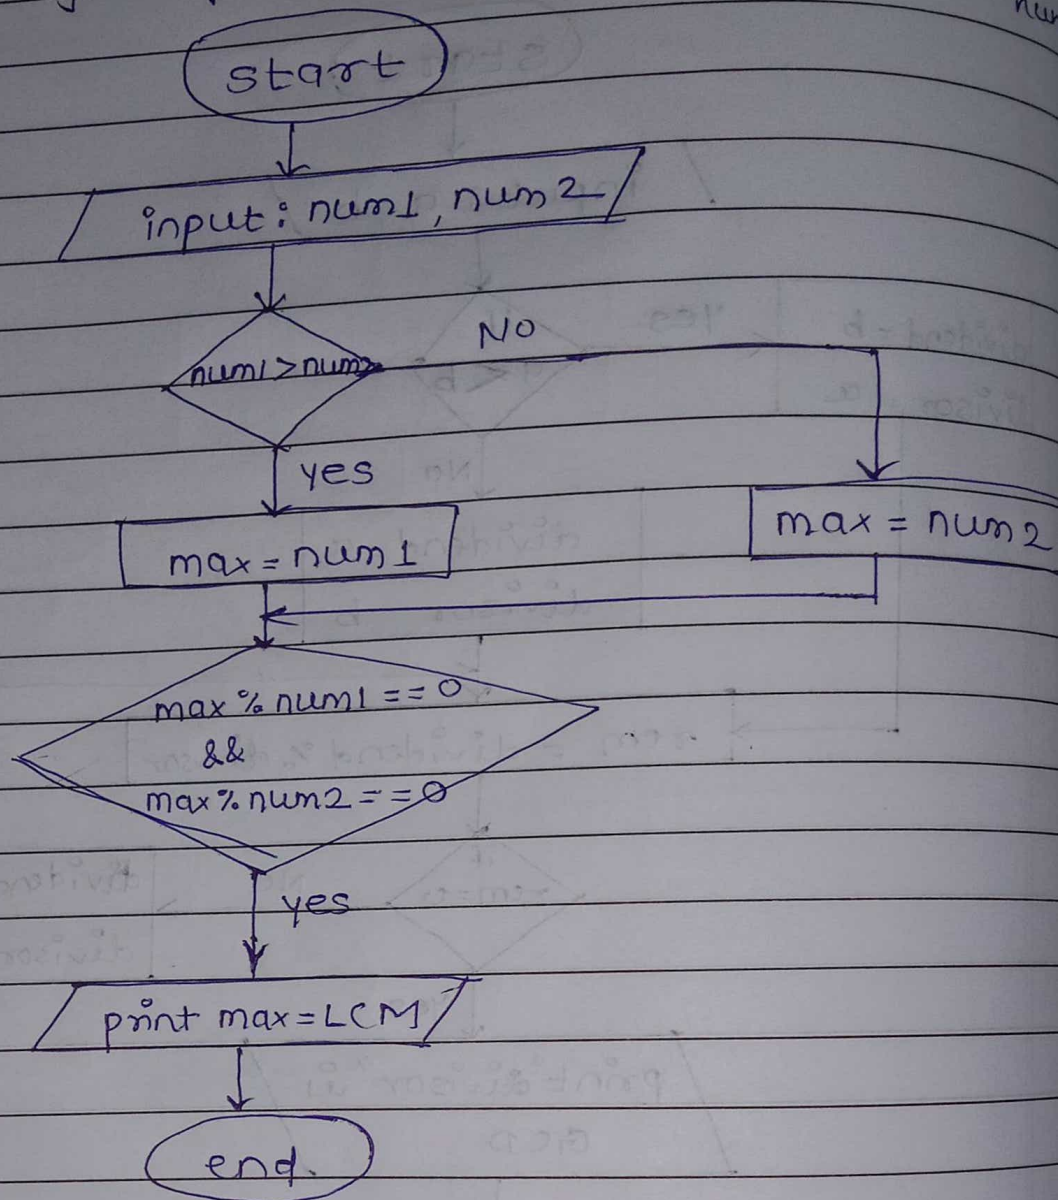 start
input: num1, num2
num1 > num2
NO
yes
max = num1
max = num2
max % num1 == 0
&&
max % num2 == 0
yes
print max = LCM
end.